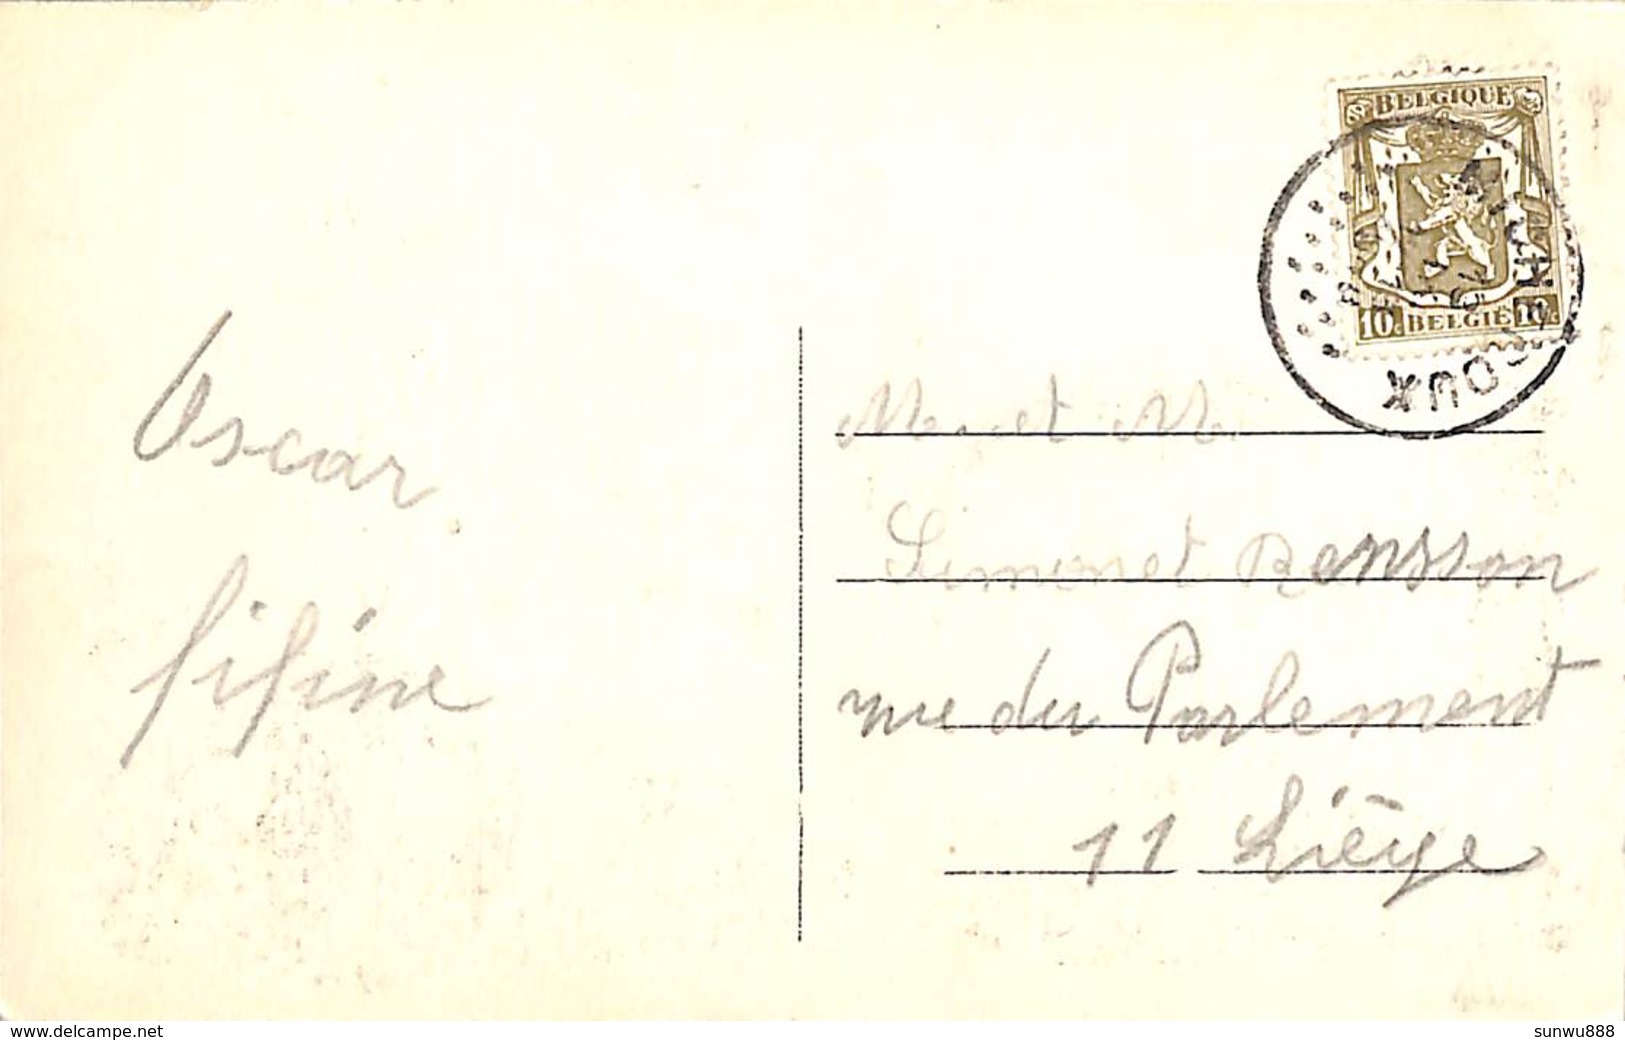 BELGIQUE
10c BELGIË 10c
Oscar
fifine
M. et M.
Simonet Bensson
rue du Parlement
11 Liège
www.delcampe.net
sunwu888